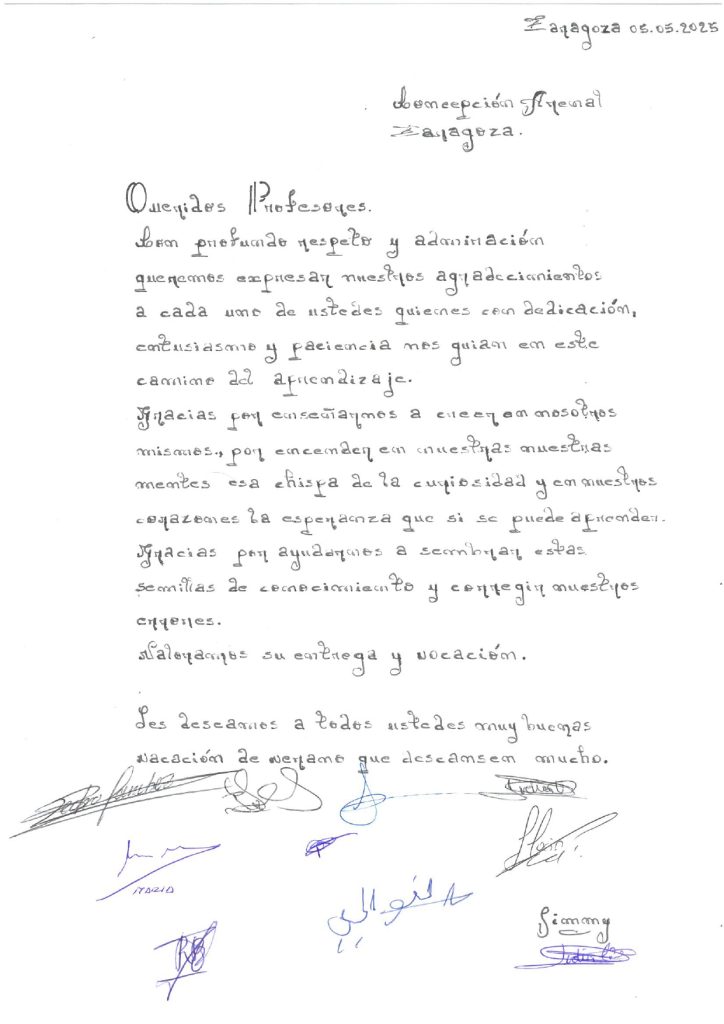 Zaragoza 05.05.2025
Concepción Arenal
Zaragoza.
Queridos Profesores.
Con profundo respeto y admiración
queremos expresar nuestros agradecimientos
a cada uno de ustedes quienes con dedicación,
entusiasmo y paciencia nos guian en este
camino del aprendizaje.
Gracias por enseñarnos a creer en nosotros
mismos., por encender en nuestras nuestras
mentes esa chispa de la curiosidad y en nuestros
corazones la esperanza que si se puede aprender.
Gracias por ayudarnos a sembrar estas
semillas de conocimiento y corregir nuestros
errores.
Valoramos su entrega y vocación.
Les deseamos a todos ustedes muy buenas
vacación de verano que descansen mucho.
Jimmy